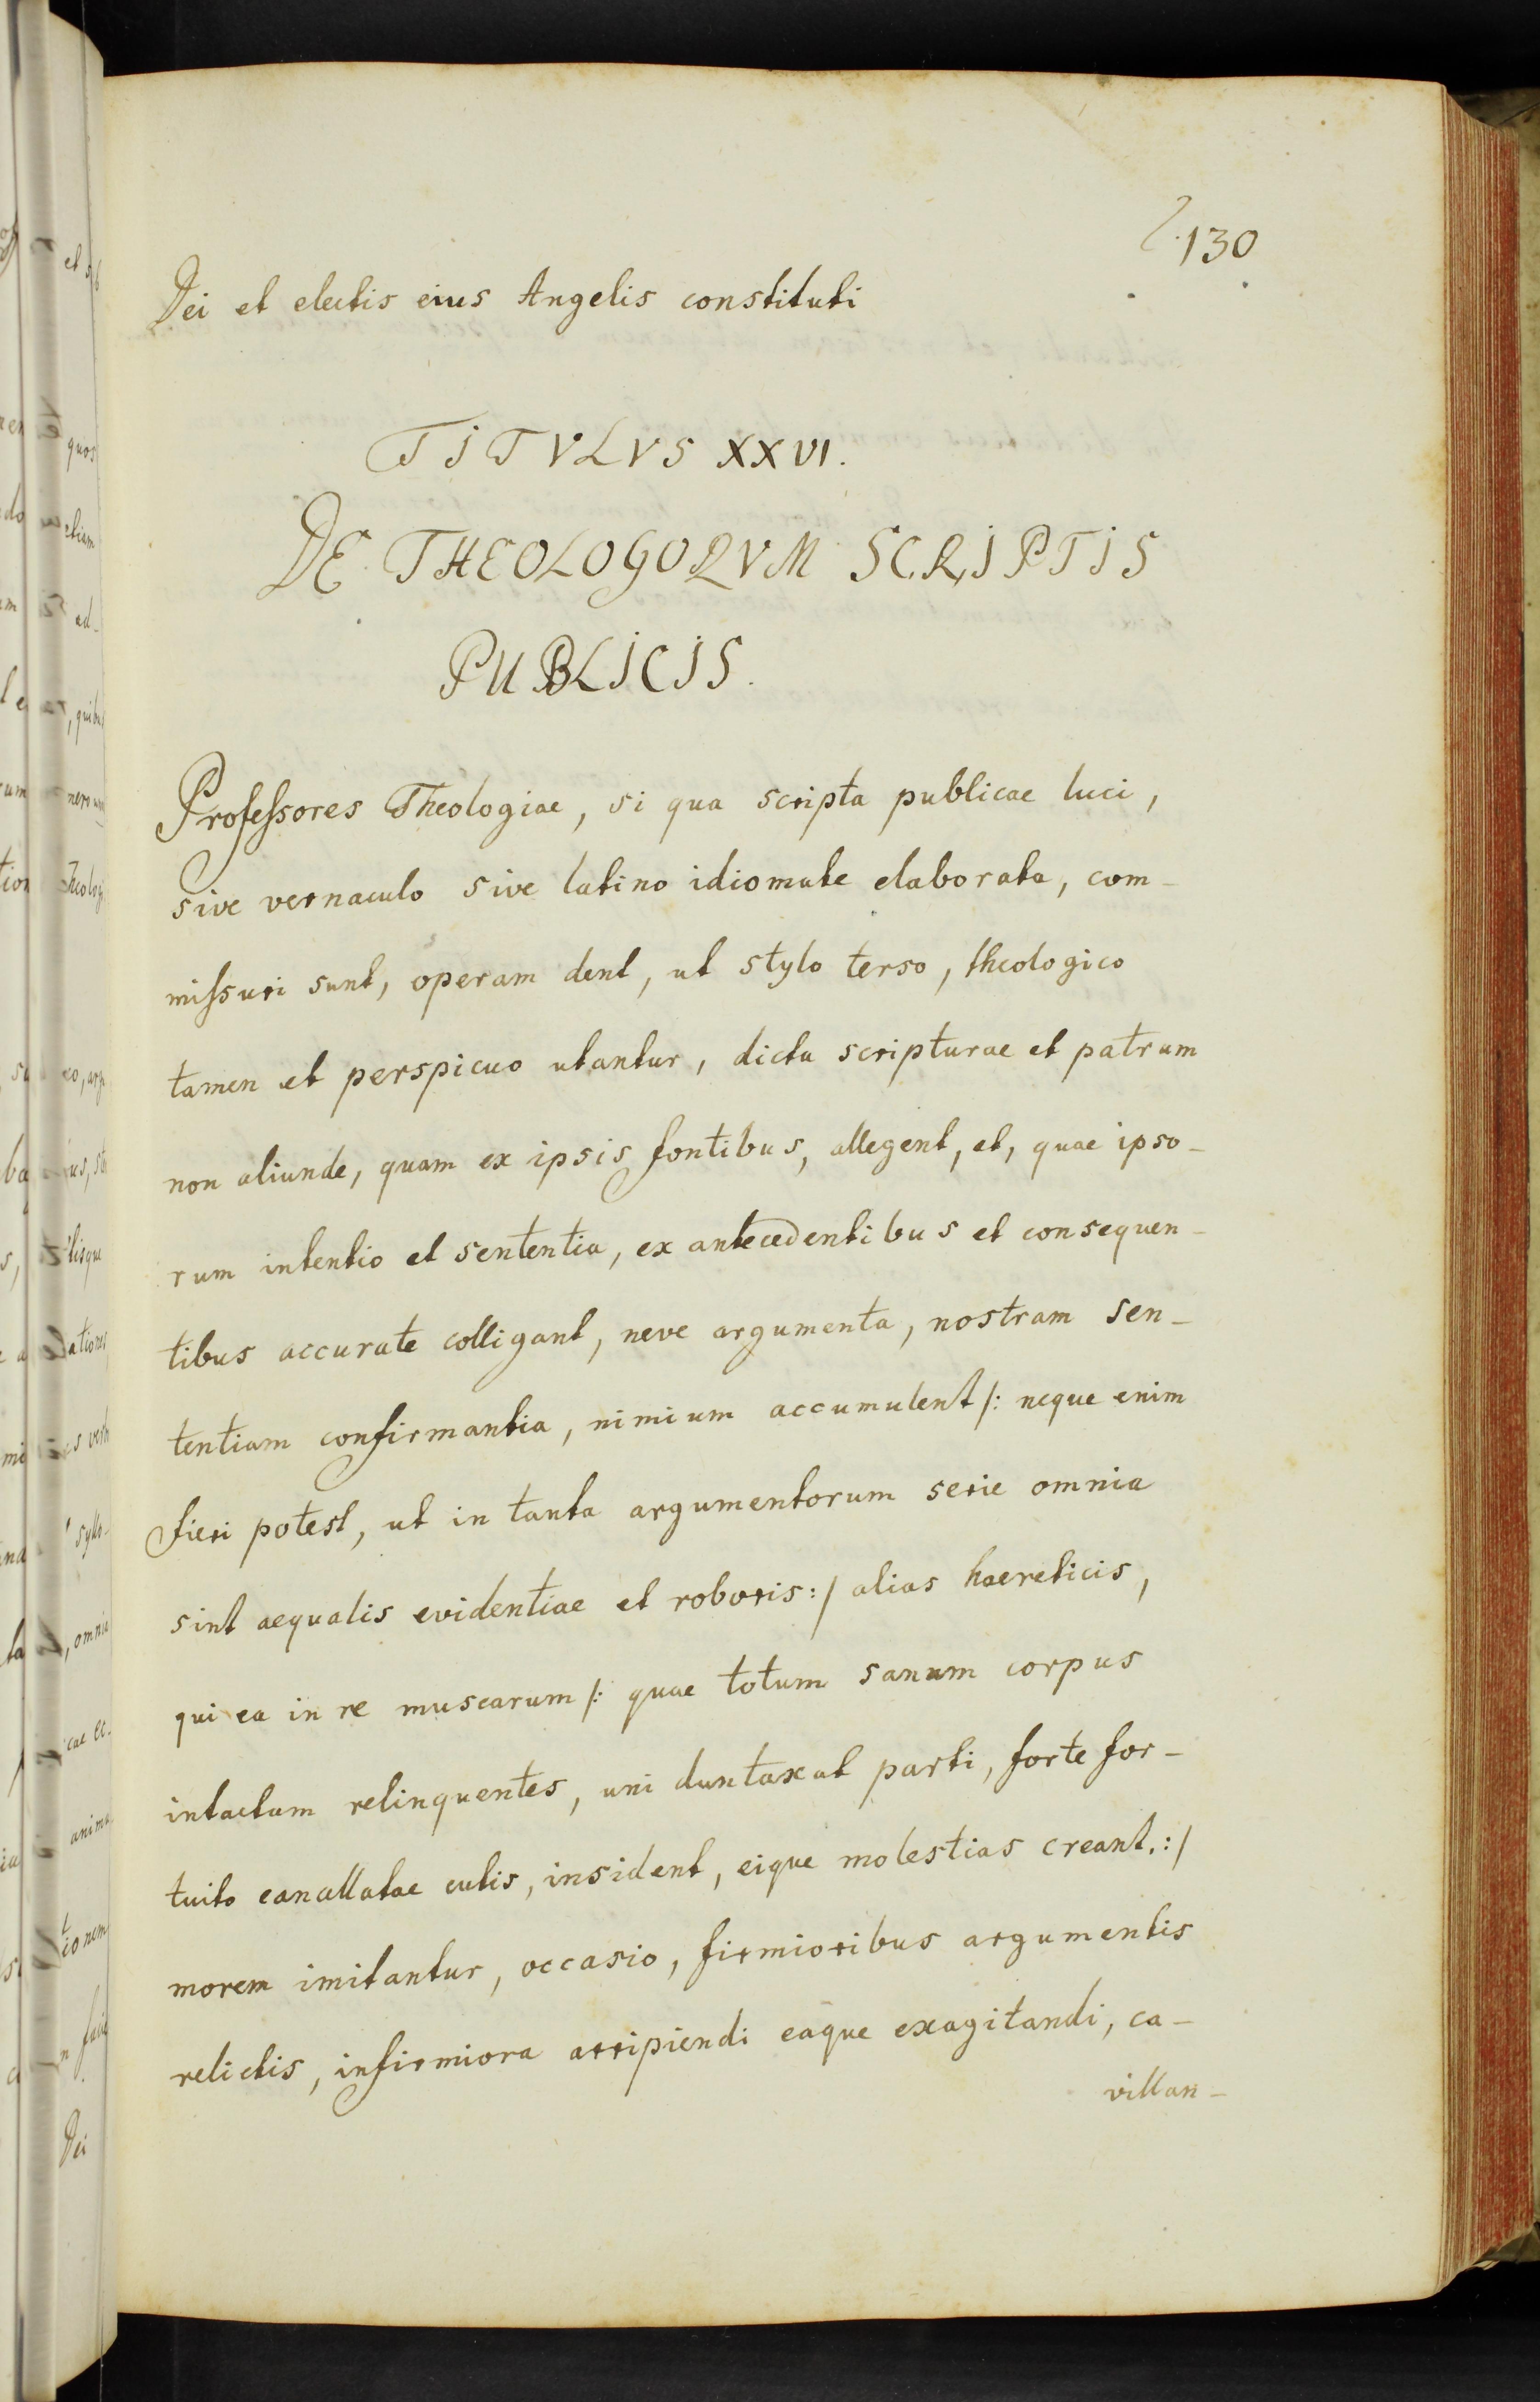 130
Dei et electis eius Angelis constituti
TITVLVS XXVI.
DE THEOLOGORVM SCRIPTIS
PUBLICIS.
Professores Theologiae, si qua scripta publicae luci,
sive vernaculo sive latino idiomate elaborata, com-
missuri sunt, operam dent, ut stylo terso, theologico
tamen et perspicuo utantur, dicta scripturae et patrum
non aliunde, quam ex ipsis fontibus, allegent, et, quae ipso-
rum intentio et sententia, ex antecedentibus et consequen-
tibus accurate colligant, neve argumenta, nostram sen-
tentiam confirmantia, nimium accumulent /: neque enim
fieri potest, ut in tanta argumentorum serie omnia
sint aequalis evidentiae et roboris :/ alias haereticis,
qui ea in re muscarum /: quae totum sanum corpus
intactum relinquentes, uni duntaxat parti, forte for-
tuito cutis, insident, eique molestias creant. :/
morem imitantur, occasio, firmioribus argumentis
relictis, infirmiora arripiendi eaque exagitandi, ca-
villan-